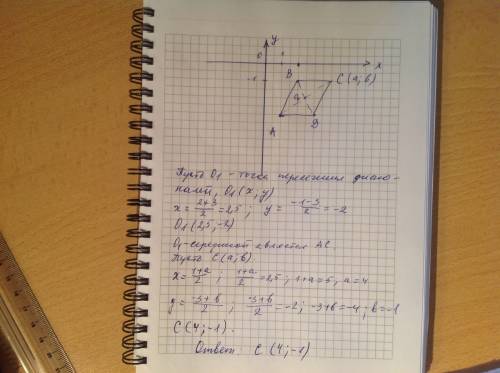 y
0 1 x
-1 B C(a;b)
O₁
A D
Пусть O₁ - точка пересечения диаго-
налей, O₁(x;y)
x = \frac{2+3}{2} = 2,5 ; y = \frac{-1-3}{2} = -2
O₁(2,5; -2)
O₁ - серединой является AC.
Пусть C(a;b).
x = \frac{1+a}{2} ; \frac{1+a}{2} = 2,5 ; 1+a=5, a=4
y = \frac{-3+b}{2} ; \frac{-3+b}{2} = -2; -3+b=-4; b=-1
C(4;-1).
Ответ: C(4;-1)